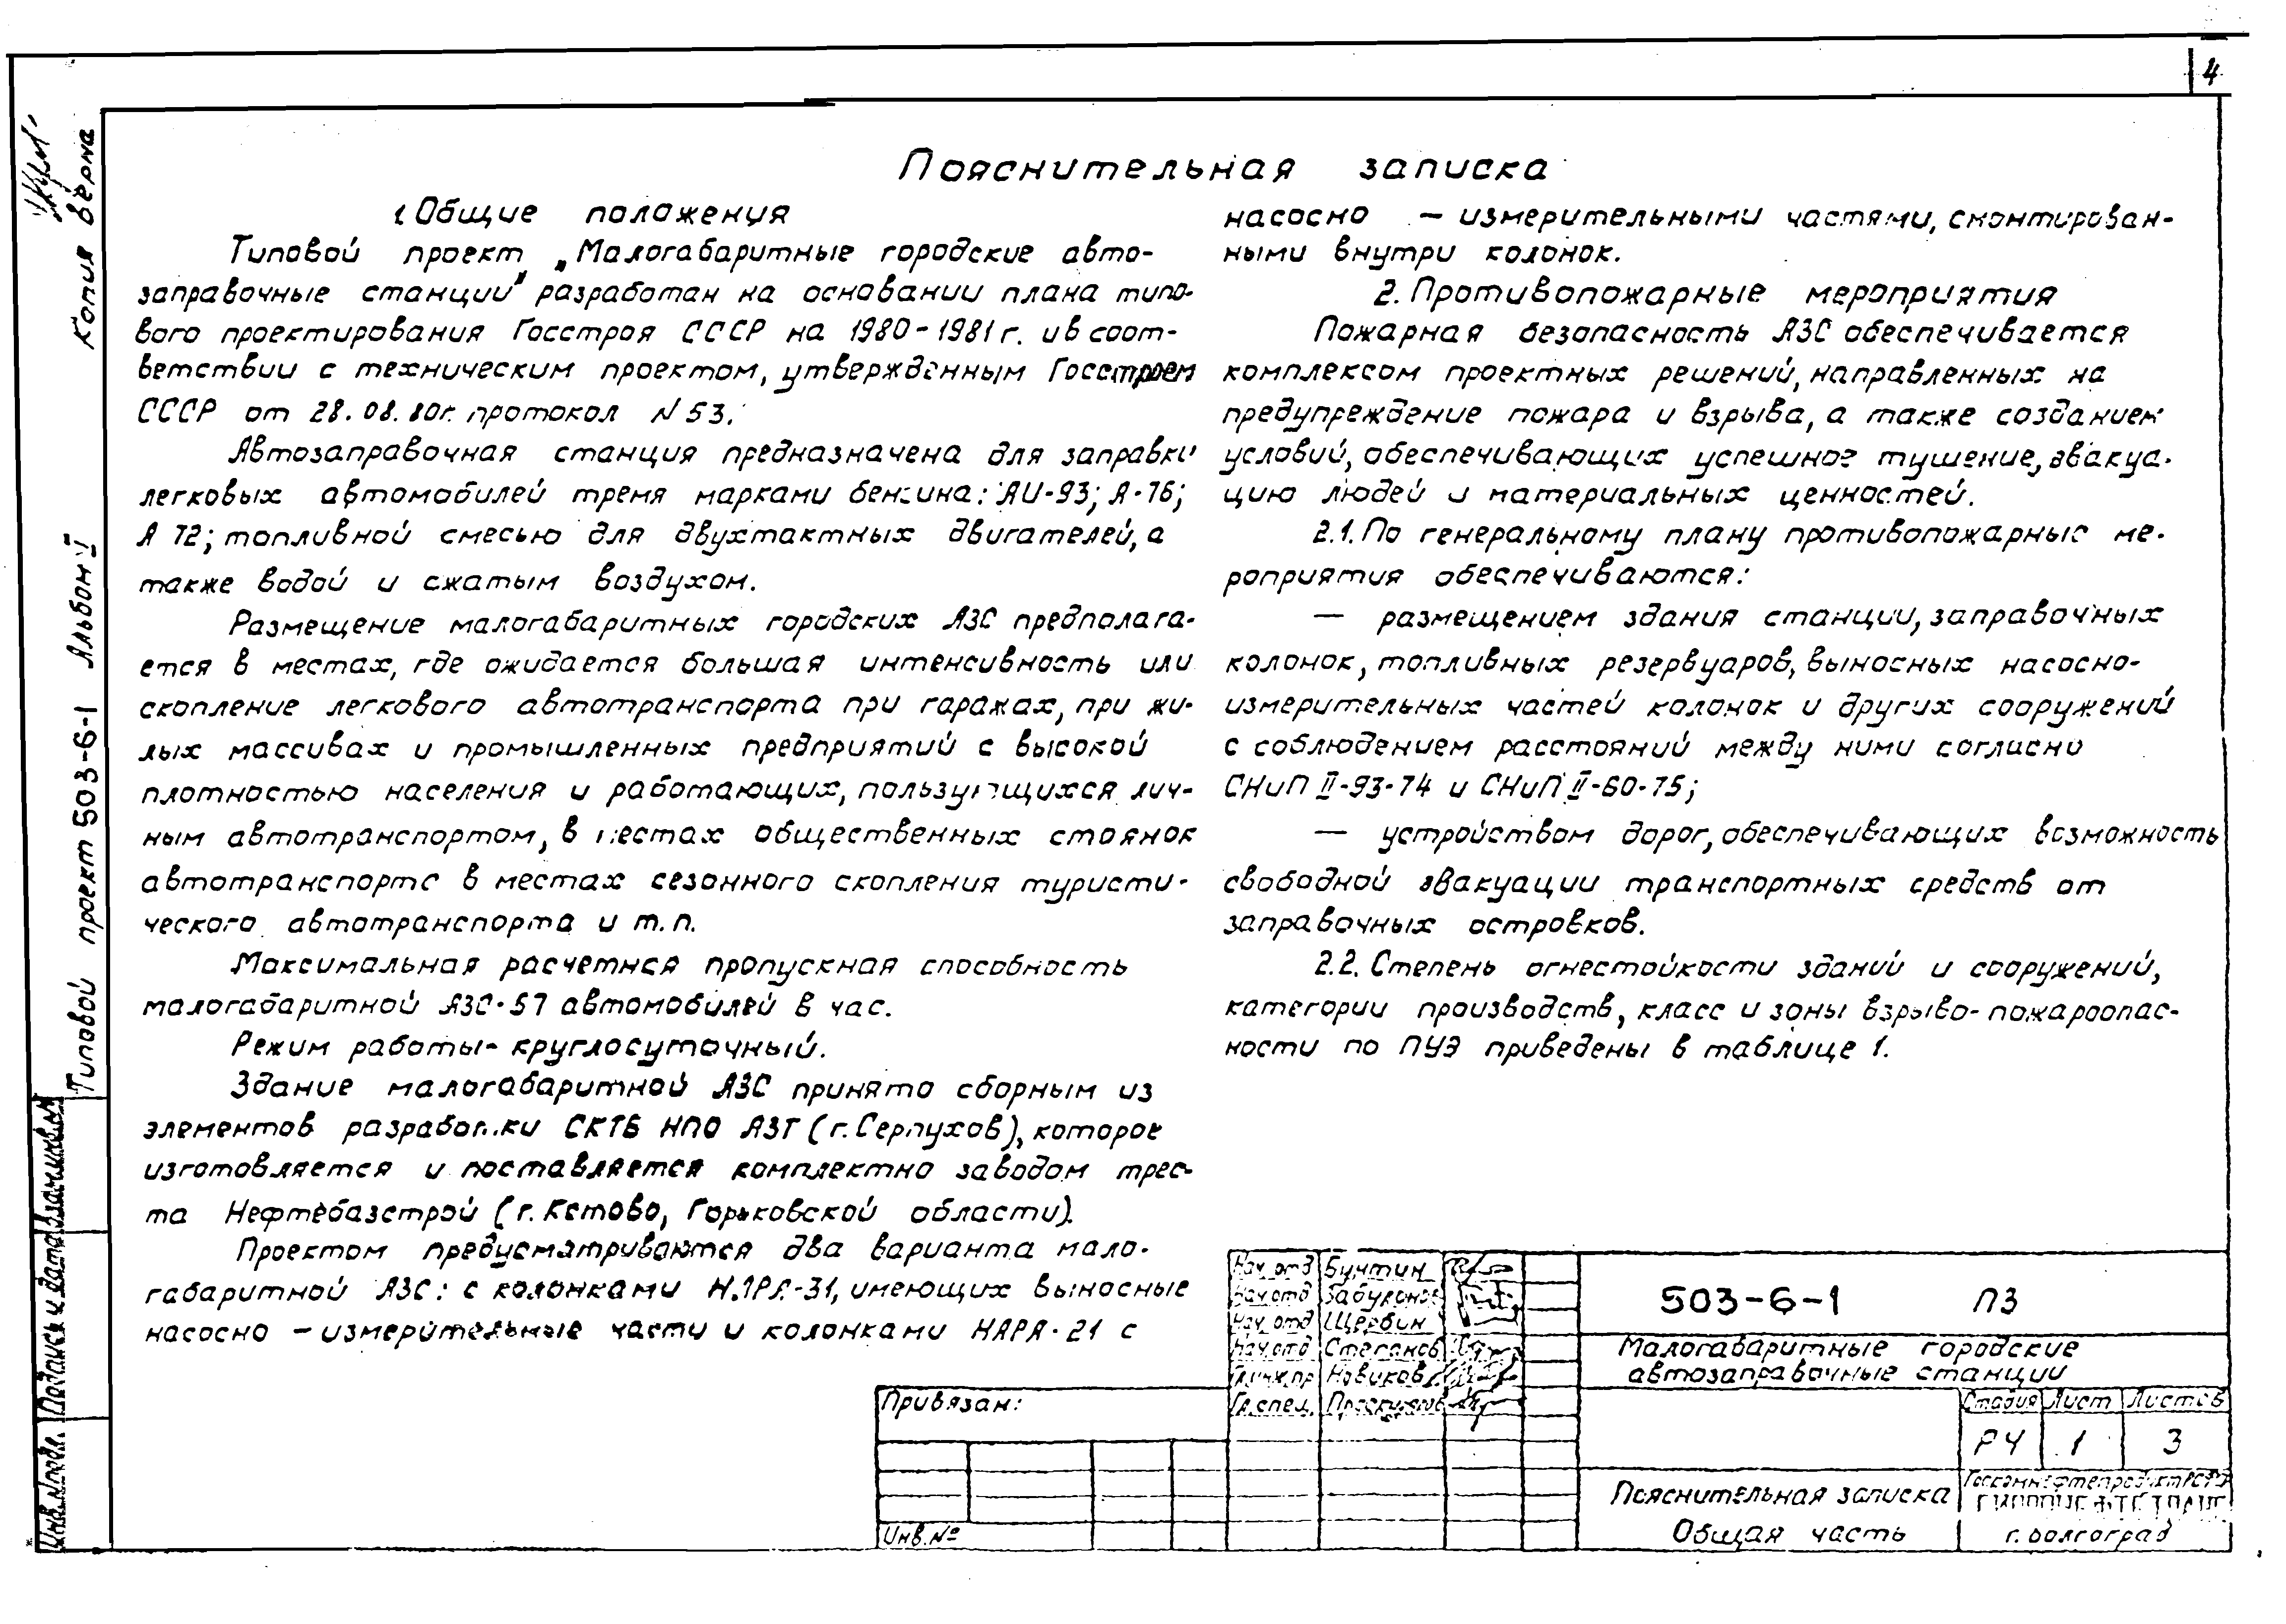 4
Копия верна
Типовой проект 503-6-1 Альбом V
Пояснительная записка
1. Общие положения
Типовой проект „Малогабаритные городские авто-
заправочные станции" разработан на основании плана типо-
вого проектирования Госстроя СССР на 1980-1981г. и в соот-
ветствии с техническим проектом, утвержденным Госстроем
СССР от 28.08.80г. протокол N 53.
Автозаправочная станция предназначена для заправки
легковых автомобилей тремя марками бензина: АИ-93; А-76;
А 72; топливной смесью для двухтактных двигателей, а
также водой и сжатым воздухом.
Размещение малогабаритных городских АЗС предполага-
ется в местах, где ожидается большая интенсивность или
скопление легкового автотранспорта при гаражах, при жи-
лых массивах и промышленных предприятий с высокой
плотностью населения и работающих, пользующихся лич-
ным автотранспортом, в местах общественных стоянок
автотранспорта в местах сезонного скопления туристи-
ческого автотранспорта и т.п.
Максимальная расчетная пропускная способность
малогабаритной АЗС-57 автомобилей в час.
Режим работы - круглосуточный.
Здание малогабаритной АЗС принято сборным из
элементов разработки СКТБ НПО АЗТ (г. Серпухов), которое
изготовляется и поставляется комплектно заводом трес-
та Нефтебазстрой (г. Кстово, Горьковской области).
Проектом предусматриваются два варианта мало-
габаритной АЗС: с колонками НАРА-31, имеющих выносные
насосно - измерительные части и колонками НАРА-21 с
насосно - измерительными частями, смонтирован-
ными внутри колонок.
2. Противопожарные мероприятия
Пожарная безопасность АЗС обеспечивается
комплексом проектных решений, направленных на
предупреждение пожара и взрыва, а также созданием
условий, обеспечивающих успешное тушение, эвакуа-
цию людей и материальных ценностей.
2.1. По генеральному плану противопожарные ме-
роприятия обеспечиваются:
— размещением здания станции, заправочных
колонок, топливных резервуаров, выносных насосно-
измерительных частей колонок и других сооружений
с соблюдением расстояний между ними согласно
СНиП II-93-74 и СНиП II-60-75;
— устройством дорог, обеспечивающих возможность
свободной эвакуации транспортных средств от
заправочных островков.
2.2. Степень огнестойкости зданий и сооружений,
категории производств, класс и зоны взрыво-пожароопас-
ности по ПУЭ приведены в таблице 1.
Нач. отд Бунтин
Нач. отд
Нач. отд Щербин
Нач. отд Степанов
Гл.инж.пр Новиков
Гл.спец.
503-6-1 ПЗ
Малогабаритные городские
автозаправочные станции
Стадия Лист Листов
РЧ 1 3
Пояснительная записка
Общая часть
Госкомнефтепродукт РСФСР
г. Волгоград
Привязан:
Инв. №
Инв. N подл. Подпись и дата Взам. инв. N